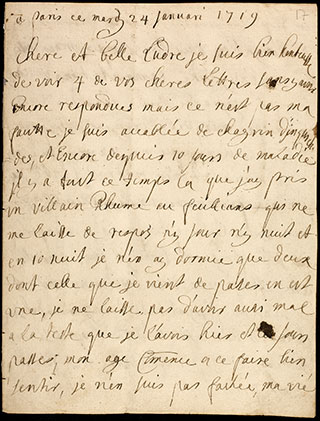 a paris ce mardy 24 januari 1719
17
chere et belle Ludre je suis bien honteuse
de voir 4 de vos cheres lettres sans y avoir
encore respondues mais ce nest pas ma
fautte je suis accablée de chagrin
des et encore depuis 10 jours de maladie
il y a tout ce temps la que jay pris
un villain Rhume au feuillans qui ne
me laisse de repos ny jour ny nuit et
en 10 nuit je nen ay dormie que deux
dont celle que je vient de passer en est
une, je ne laisse pas d'avoir aussi mal
a la teste que je lavois hier et jours
passes, mon age comence a ce faire bien
sentir, je n'en suis pas ma vie